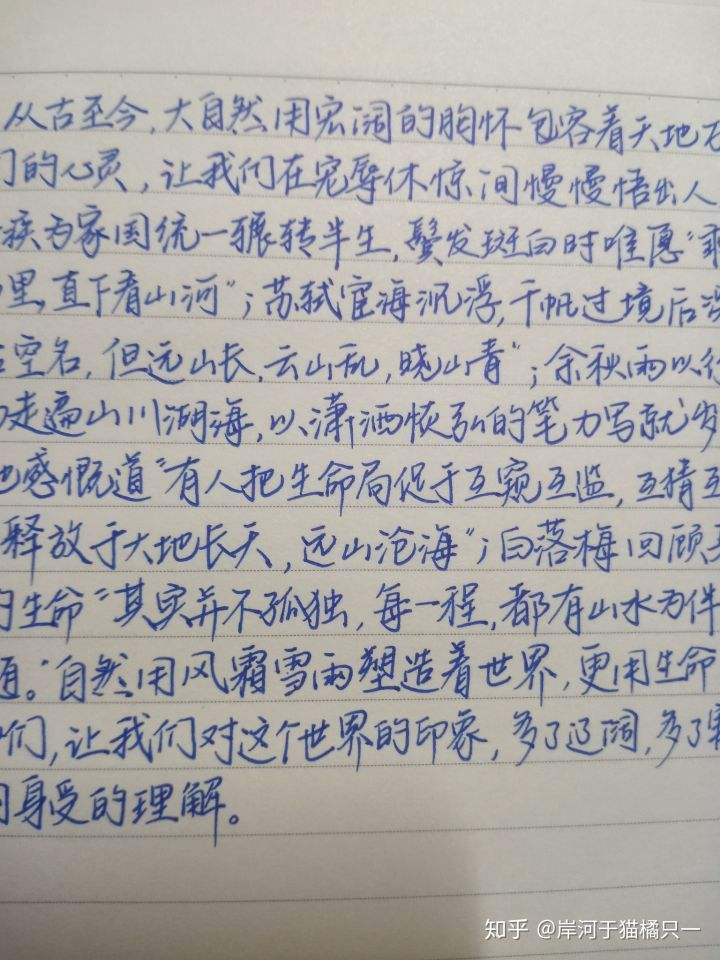 从古至今,大自然用宏阔的胸怀包容着天地万
们的心灵,让我们在宠辱休惊间慢慢悟出人
疾为家国统一辗转半生,鬓发斑白时唯愿“乘
里,直下看山河”;苏轼宦海沉浮,千帆过境后
空名,但远山长,云山乱,晓山青”;余秋雨以
走遍山川湖海,以潇洒恢弘的笔力写就岁
他感慨道“有人把生命局促于互窥互监,互猜互
释放于大地长天,远山沧海”;白落梅回顾
的生命“其实并不孤独,每一程,都有山水为伴
。”自然用风霜雪雨塑造着世界,更用生命
们,让我们对这个世界的印象,多了辽阔,多了
同身受的理解。
知乎 @岸河于猫橘只一